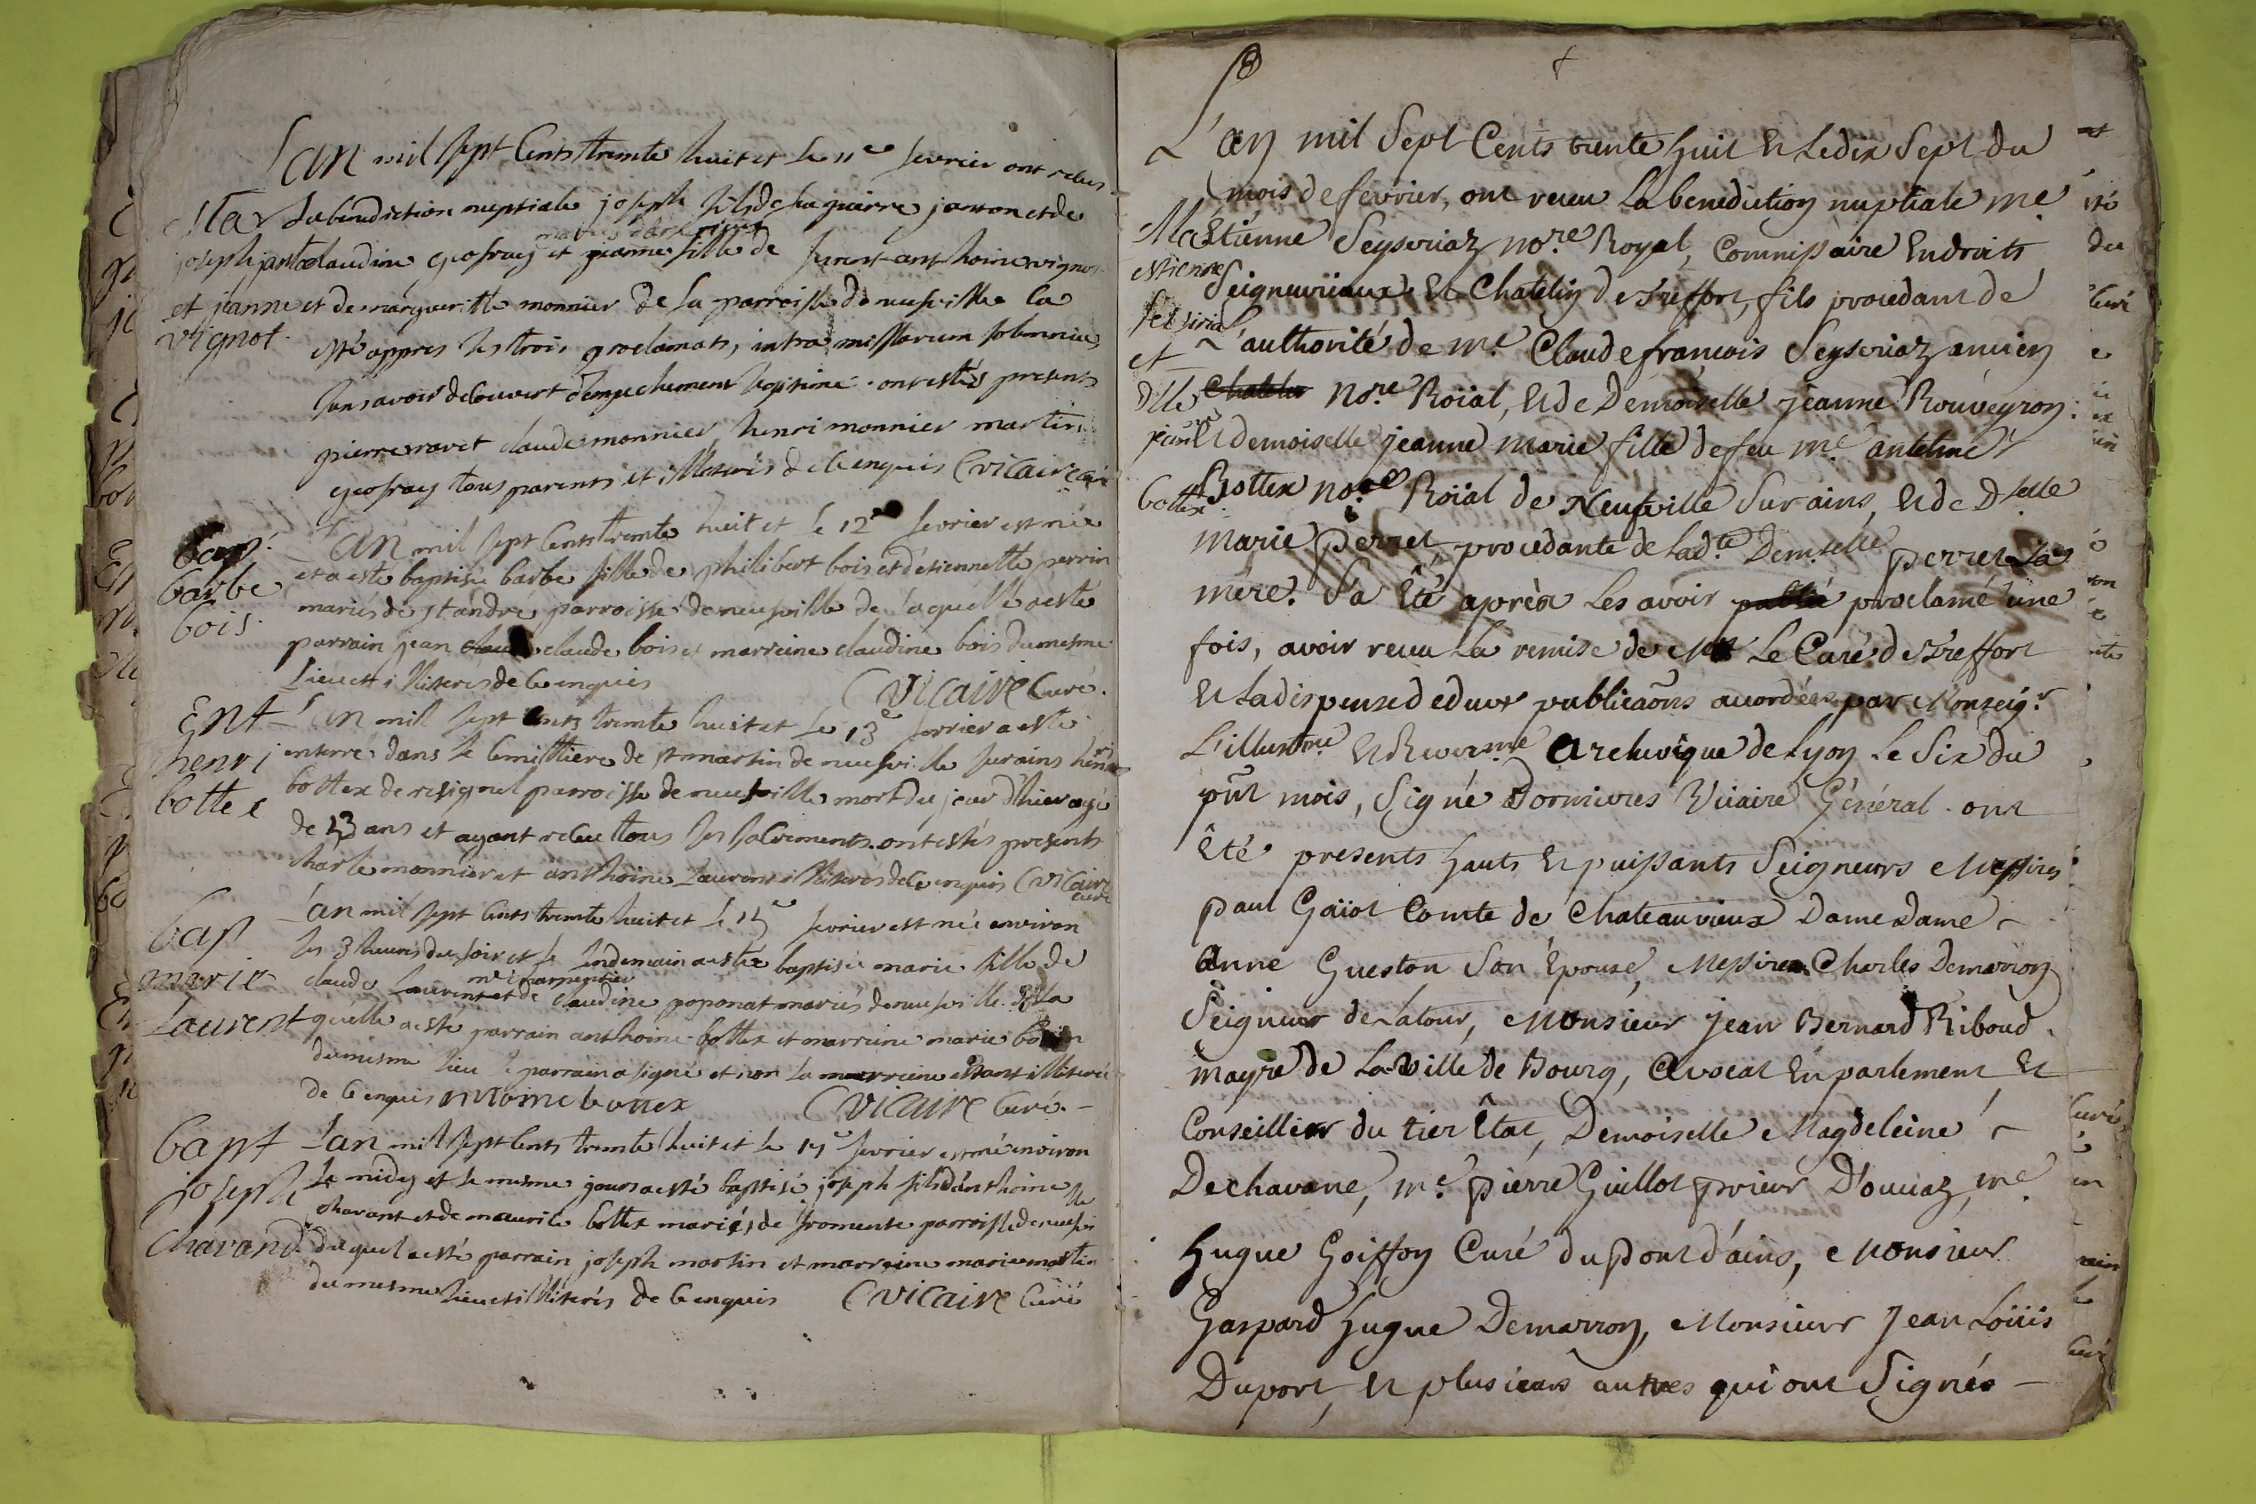 L'an mil sept cents trente huit et le 11e fevrier ont recus
Mar la benediction nuptiale joseph fils de feu pierre janton et de
mariés d'arferriere
joseph janton claudine geofray et jeanne fille de anthoine vignot
et jeanne et de margueritte monnier de la parroisse de neufville la
vignot.
esté appres les trois proclamats, intra missarum solemnia,
sans avoir decouvert d'empechement legitime. ont estés presents
pierre ravet claude monnier, henri monnier martin
geofray tous parents et illiterés de ce enquis Cvicaire curé
bapt. L'an mil sept cents trente huit et le 12e fevrier est née
barbe et a esté baptisée barbe fille de philibert bois et d'etiennette perrin
bois. mariés de st andré parroisse de neufville de laquelle a esté
parrain jean claude bois et marreine claudine bois du mesme
Lieu et illiteres de ce enquis Cvicaire Curé.
Ent L'an mil sept cents trente huit et le 13e fevrier a esté
henri enterré dans le cimittiere de st martin de neufville sur ains henri
bottex bottex de resignel parroisse de neufville mort du jour d'hier agé
de 13 ans et ayant recu tous les sacrements. ont estés presents
charle monnier et anthoine Laurent illiterés de ce enquis Cvicaire
curé
bap L'an mil sept cents trente huit et le 15e fevrier est née environ
les 3 heures du soir et le lendemain a esté baptisée marie fille de
me charpentier
marie claude Laurent et de claudine poponat mariés de neufville. de la
Laurent quelle a esté parrain anthoine bottex et marreine marie
du mesme lieu le parrain a signé et non la marreine estant illiterée
de ce enquis antoine bottex Cvicaire Curé.
bapt L'an mil sept cents trente huit et le 17e fevrier est né environ
joseph Le midy et le mesme jour a esté baptisé joseph fils d'anthoine
chavant et de maurise bottex mariés de fromente parroisse de neufville
Chavand duquel a esté parrain joseph martin et marreine marie martin
du mesme lieu et illiterés de ce enquis Cvicaire Curé
L'an mil Sept Cents trente huit Et Le dix Sept du
mois de fevrier, ont receu La benediction nuptiale Me
Mar Étienne Seyseriaz Nore Royal, Commissaire En droits
estienne Seigneuriaux Et Chatelin de Treffort, fils procedant de
seisiria L'authorité de Me Claude françois Seyseriaz ancien
et
dlle Nore Roïal, Et de Demoiselle jeanne Rouveyron:
jeanne Et demoiselle jeanne marie fille de feu Me antelme
bottex. Bottex Nore Roïal de Neufville Sur ains, Et de Dlelle
marie perret, procedante de Ladte Demselle perret Sa
mere. S'a Été aprèx Les avoir publié proclamé une
fois, avoir receu La remise de Mr Le Curé de Treffort
Et La dispense de deux publicaons accordées par Monseigr
L'illustrme Et Reverme archevêque de Lyon Le Six du
pnt mois, Signé Dornieures Vicaire Général. ont
Été presents hauts Et puissants Seigneurs Messires
paul Gaïot Comte de Chateauvieux Dame Dame
anne Gueston Son Epouse, Messire Charles Demarron
Seigneur de Latour, Monsieur Jean Bernard Riboud.
mayre de La Ville de Bourg, avocat En parlement Et
Conseiller du tier Etat, Demoiselle Magdeleine
Dechavane, Me pierre Guillot prieur D'ouciaz, Me
hugue Goiffon Curé du pont d'ains, Monsieur
Gaspard hugue Demarron, Monsieur Jean Loüis
Duport, Et plusieurs autres qui ont Signés